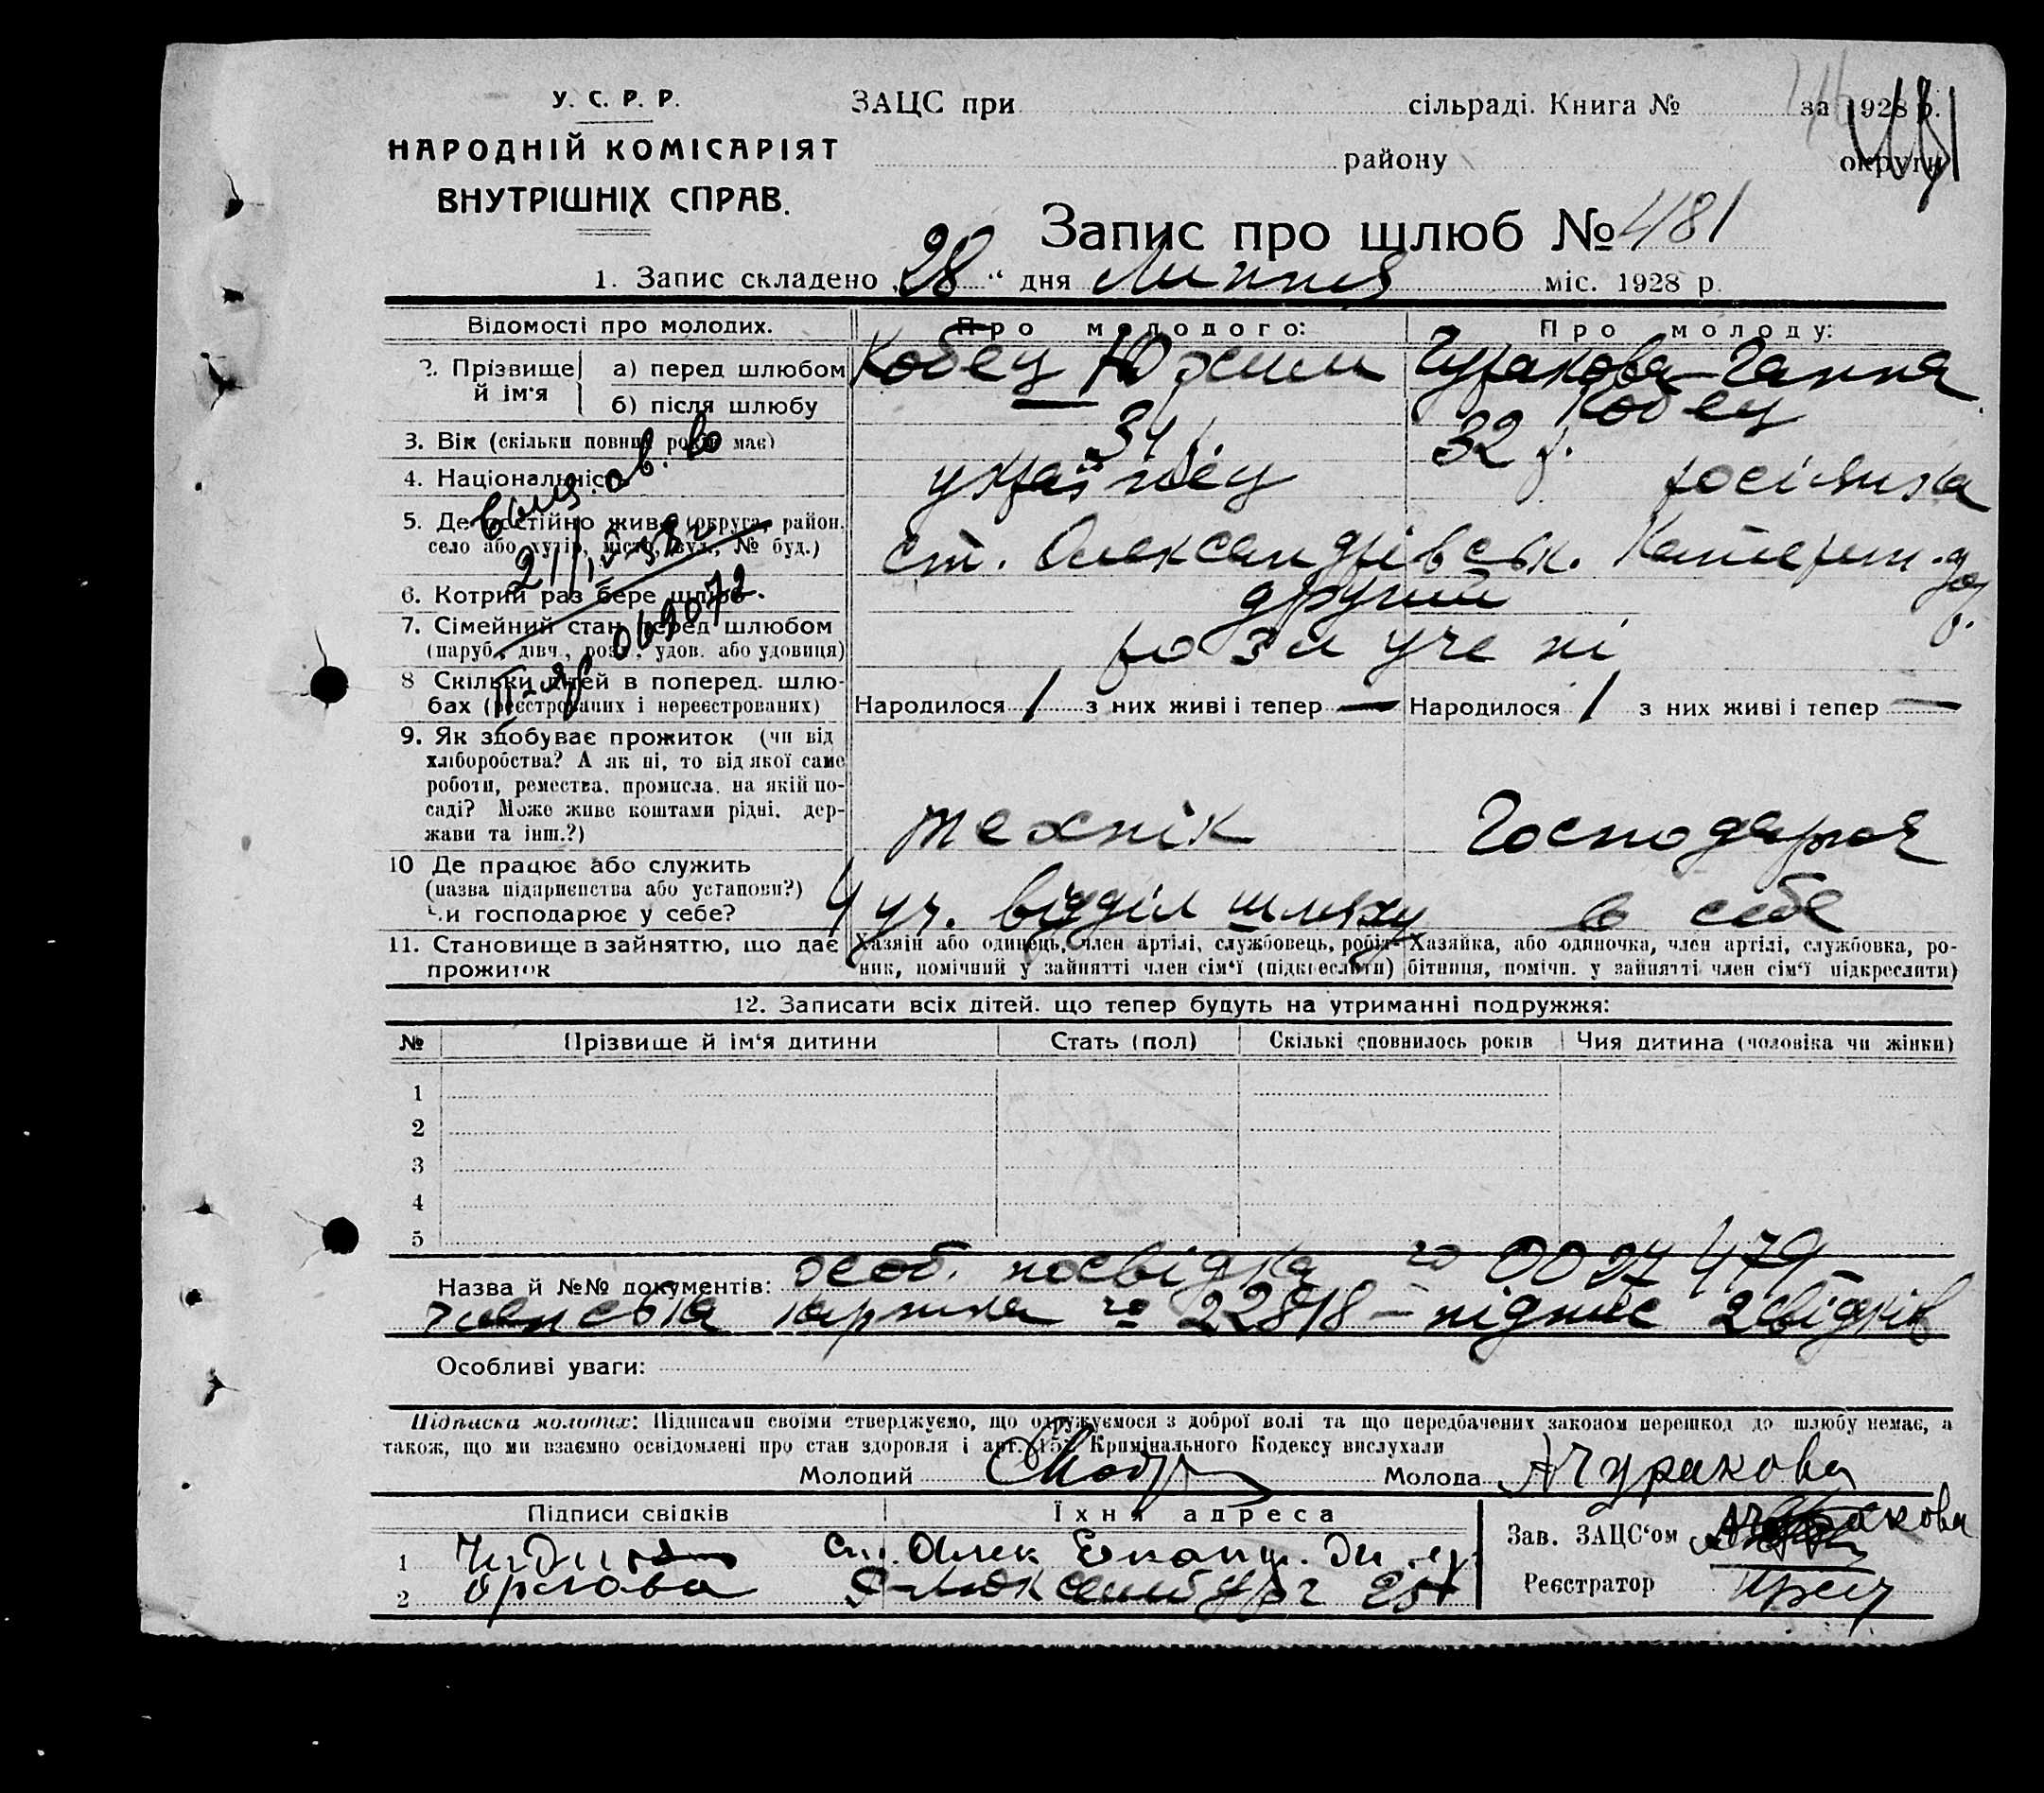 У. С. Р. Р.
НАРОДНІЙ КОМІСАРІЯТ
ВНУТРІШНІХ СПРАВ.
ЗАЦС при сільраді. Книга № за 1928 р.
району округи
Запис про шлюб № 481
1. Запис складено „28“ дня Липня міс. 1928 р.
Відомості про молодих. Про молодого: Про молоду:
2. Прізвище й ім'я а) перед шлюбом Кобец Юхим Чуракова Ганна
б) після шлюбу — Кобец
3. Вік (скільки повних років має) 34 р. 32 р.
4. Національність українец росіянка
5. Де постійно живе (округа, район, село або хутір, місто, вул., № буд.) ст. Олександрівськ. Катерин. дор.
6. Котрий раз бере шлюб. другий
7. Сімейний стан перед шлюбом (паруб., дівч., розв., удов. або удовиця) розлучені
8 Скільки дітей в поперед. шлюбах (реєстрованих і нереєстрованих) Народилося 1 з них живі і тепер — Народилося 1 з них живі і тепер —
9. Як здобуває прожиток (чи від хліборобства? А як ні, то від якої саме роботи, ремества, промисла, на якій посаді? Може живе коштами рідні, держави та інш.?) технік Господарка
10 Де працює або служить (назва підприємства або установи?) Чи господарює у себе? 4 уч. відділ шляху в себе
11. Становище в зайняттю, що дає прожиток Хазяїн або одинець, член артілі, службовець, робітник, помічний у зайнятті член сім'ї (підкреслити) Хазяйка, або одиночка, член артілі, службовка, робітниця, помічн. у зайнятті член сім'ї підкреслити)
069072
12. Записати всіх дітей, що тепер будуть на утриманні подружжя:
№ Прізвище й ім'я дитини Стать (пол) Скількі сповнилось років Чия дитина (чоловіка чи жінки)
1
2
3
4
5
Назва й №№ документів: особ. посвідка № 0027479
членська картка № 22818 — підпис 2 свідків
Особливі уваги:
Підписка молодих: Підписами своїми стверджуємо, що одружуємося з доброї волі та що передбачених законом перешкод до шлюбу немає, а
також, що ми взаємно освідомлені про стан здоровля і арт. 15 Кримінального Кодексу вислухали
Молодий Молода АЧуракова
Підписи свідків Їхня адреса
Зав. ЗАЦС'ом
1
2 Орлова Р-Люксембург
Реєстратор